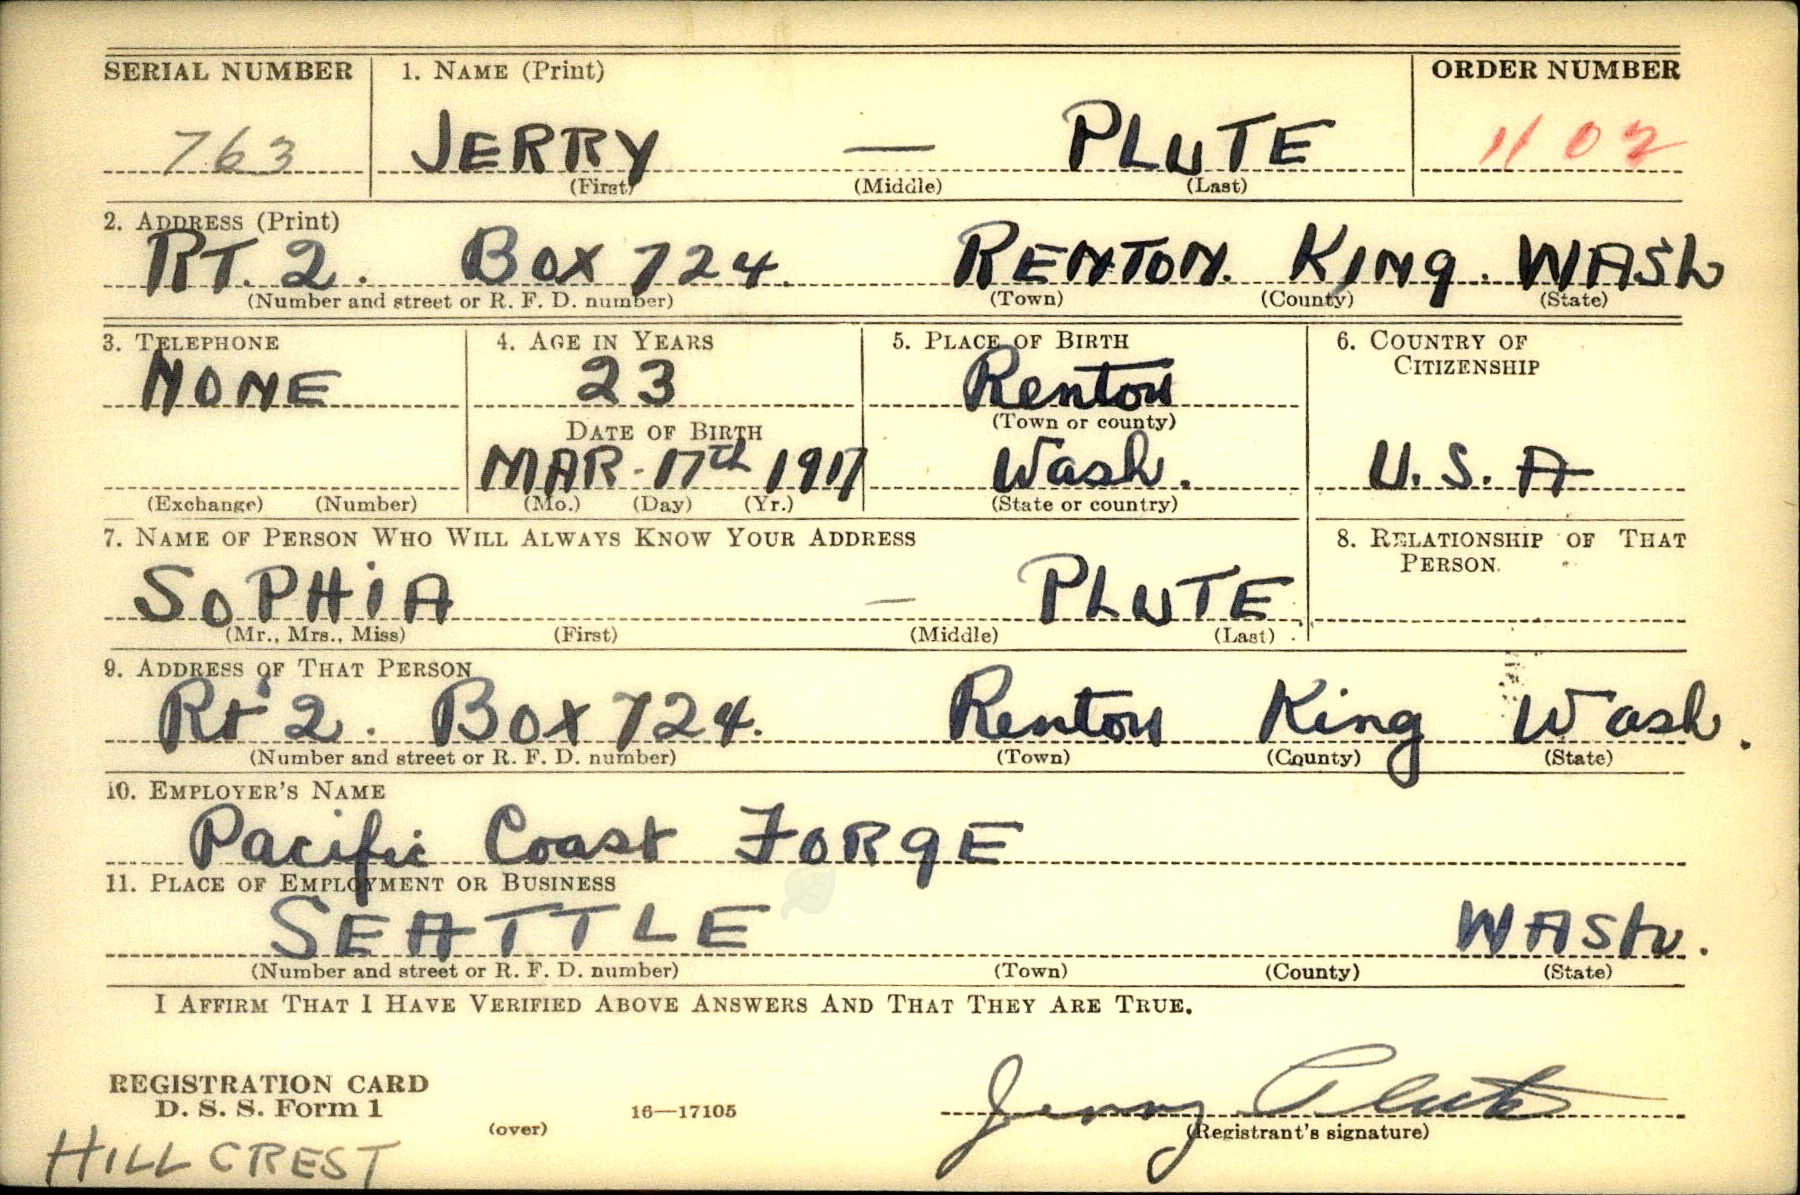 SERIAL NUMBER 1. NAME (Print) ORDER NUMBER
763 JERRY — PLUTE 1102
(First) (Middle) (Last)
2. ADDRESS (Print)
RT. 2. BOX 724. RENTON. KING. WASH
(Number and street or R. F. D. number) (Town) (County) (State)
3. TELEPHONE 4. AGE IN YEARS 5. PLACE OF BIRTH 6. COUNTRY OF
CITIZENSHIP
NONE 23 Renton
(Town or county)
DATE OF BIRTH
MAR. 17th 1917 Wash. U.S.A
(Exchange) (Number) (Mo.) (Day) (Yr.) (State or country)
7. NAME OF PERSON WHO WILL ALWAYS KNOW YOUR ADDRESS 8. RELATIONSHIP OF THAT
PERSON
SOPHIA — PLUTE
(Mr., Mrs., Miss) (First) (Middle) (Last)
9. ADDRESS OF THAT PERSON
Rt 2. Box 724. Renton King Wash.
(Number and street or R. F. D. number) (Town) (County) (State)
10. EMPLOYER'S NAME
Pacific Coast FORGE
11. PLACE OF EMPLOYMENT OR BUSINESS
SEATTLE WASH.
(Number and street or R. F. D. number) (Town) (County) (State)
I AFFIRM THAT I HAVE VERIFIED ABOVE ANSWERS AND THAT THEY ARE TRUE.
REGISTRATION CARD
D. S. S. Form 1 16—17105 Jerry Plute
(over) (Registrant's signature)
HILLCREST